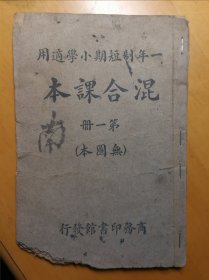 用適學小期短制年一
本課合混
册一第
(本圖無)
南
行發館書印務商